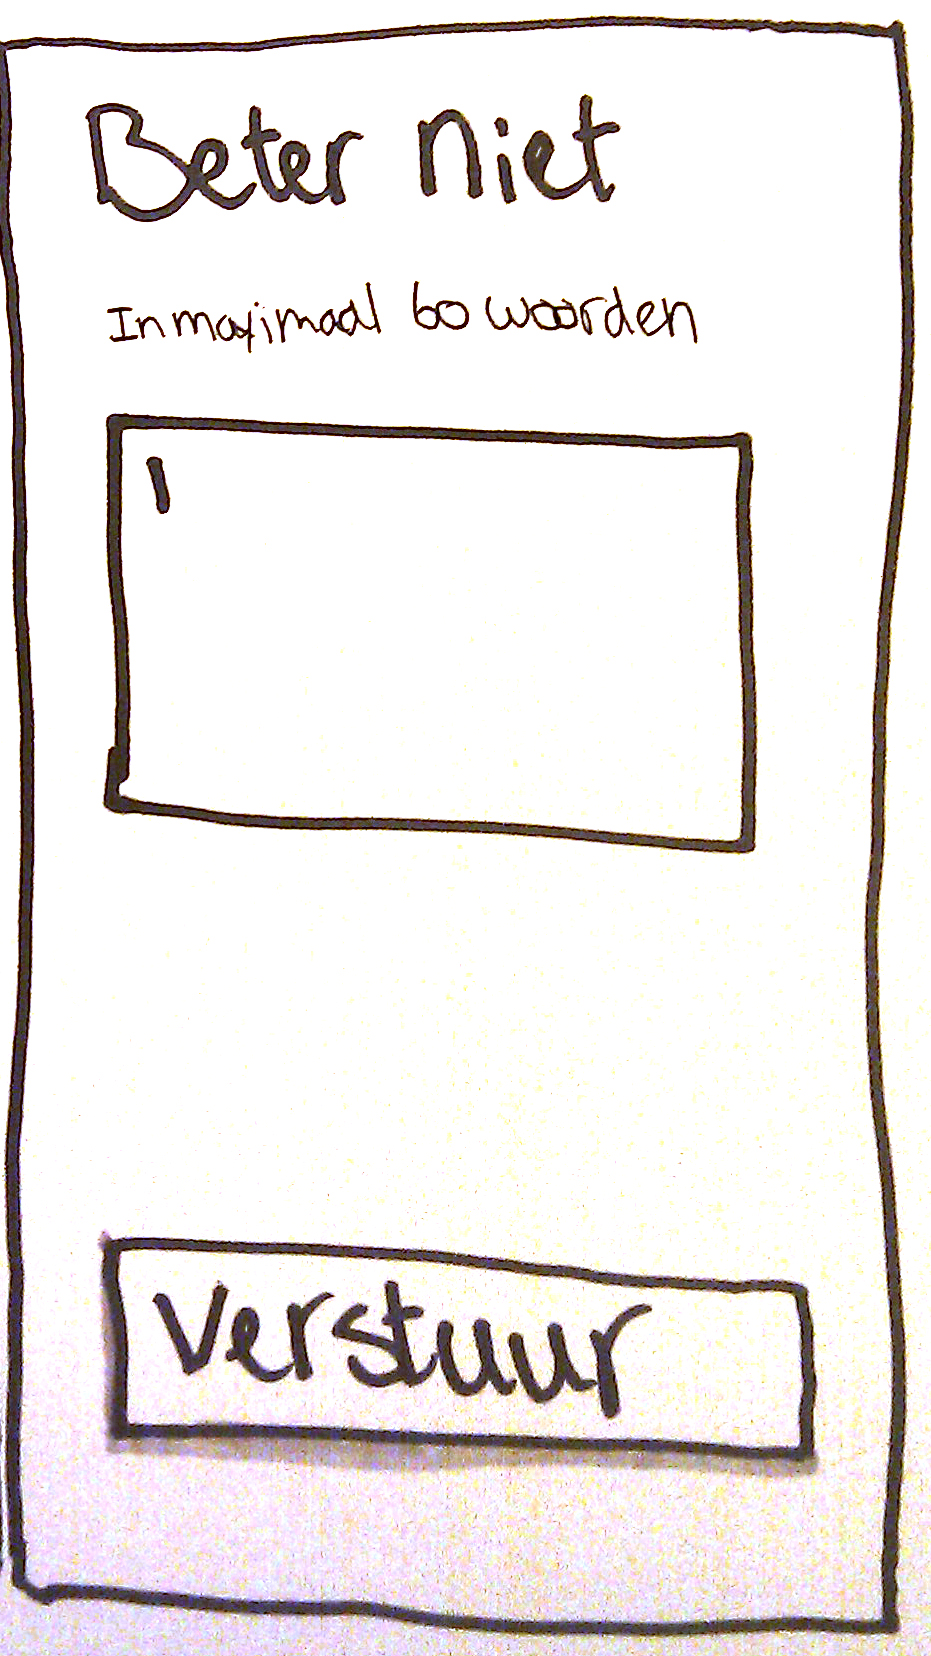 Beter niet
In maximaal 60 woorden
Verstuur